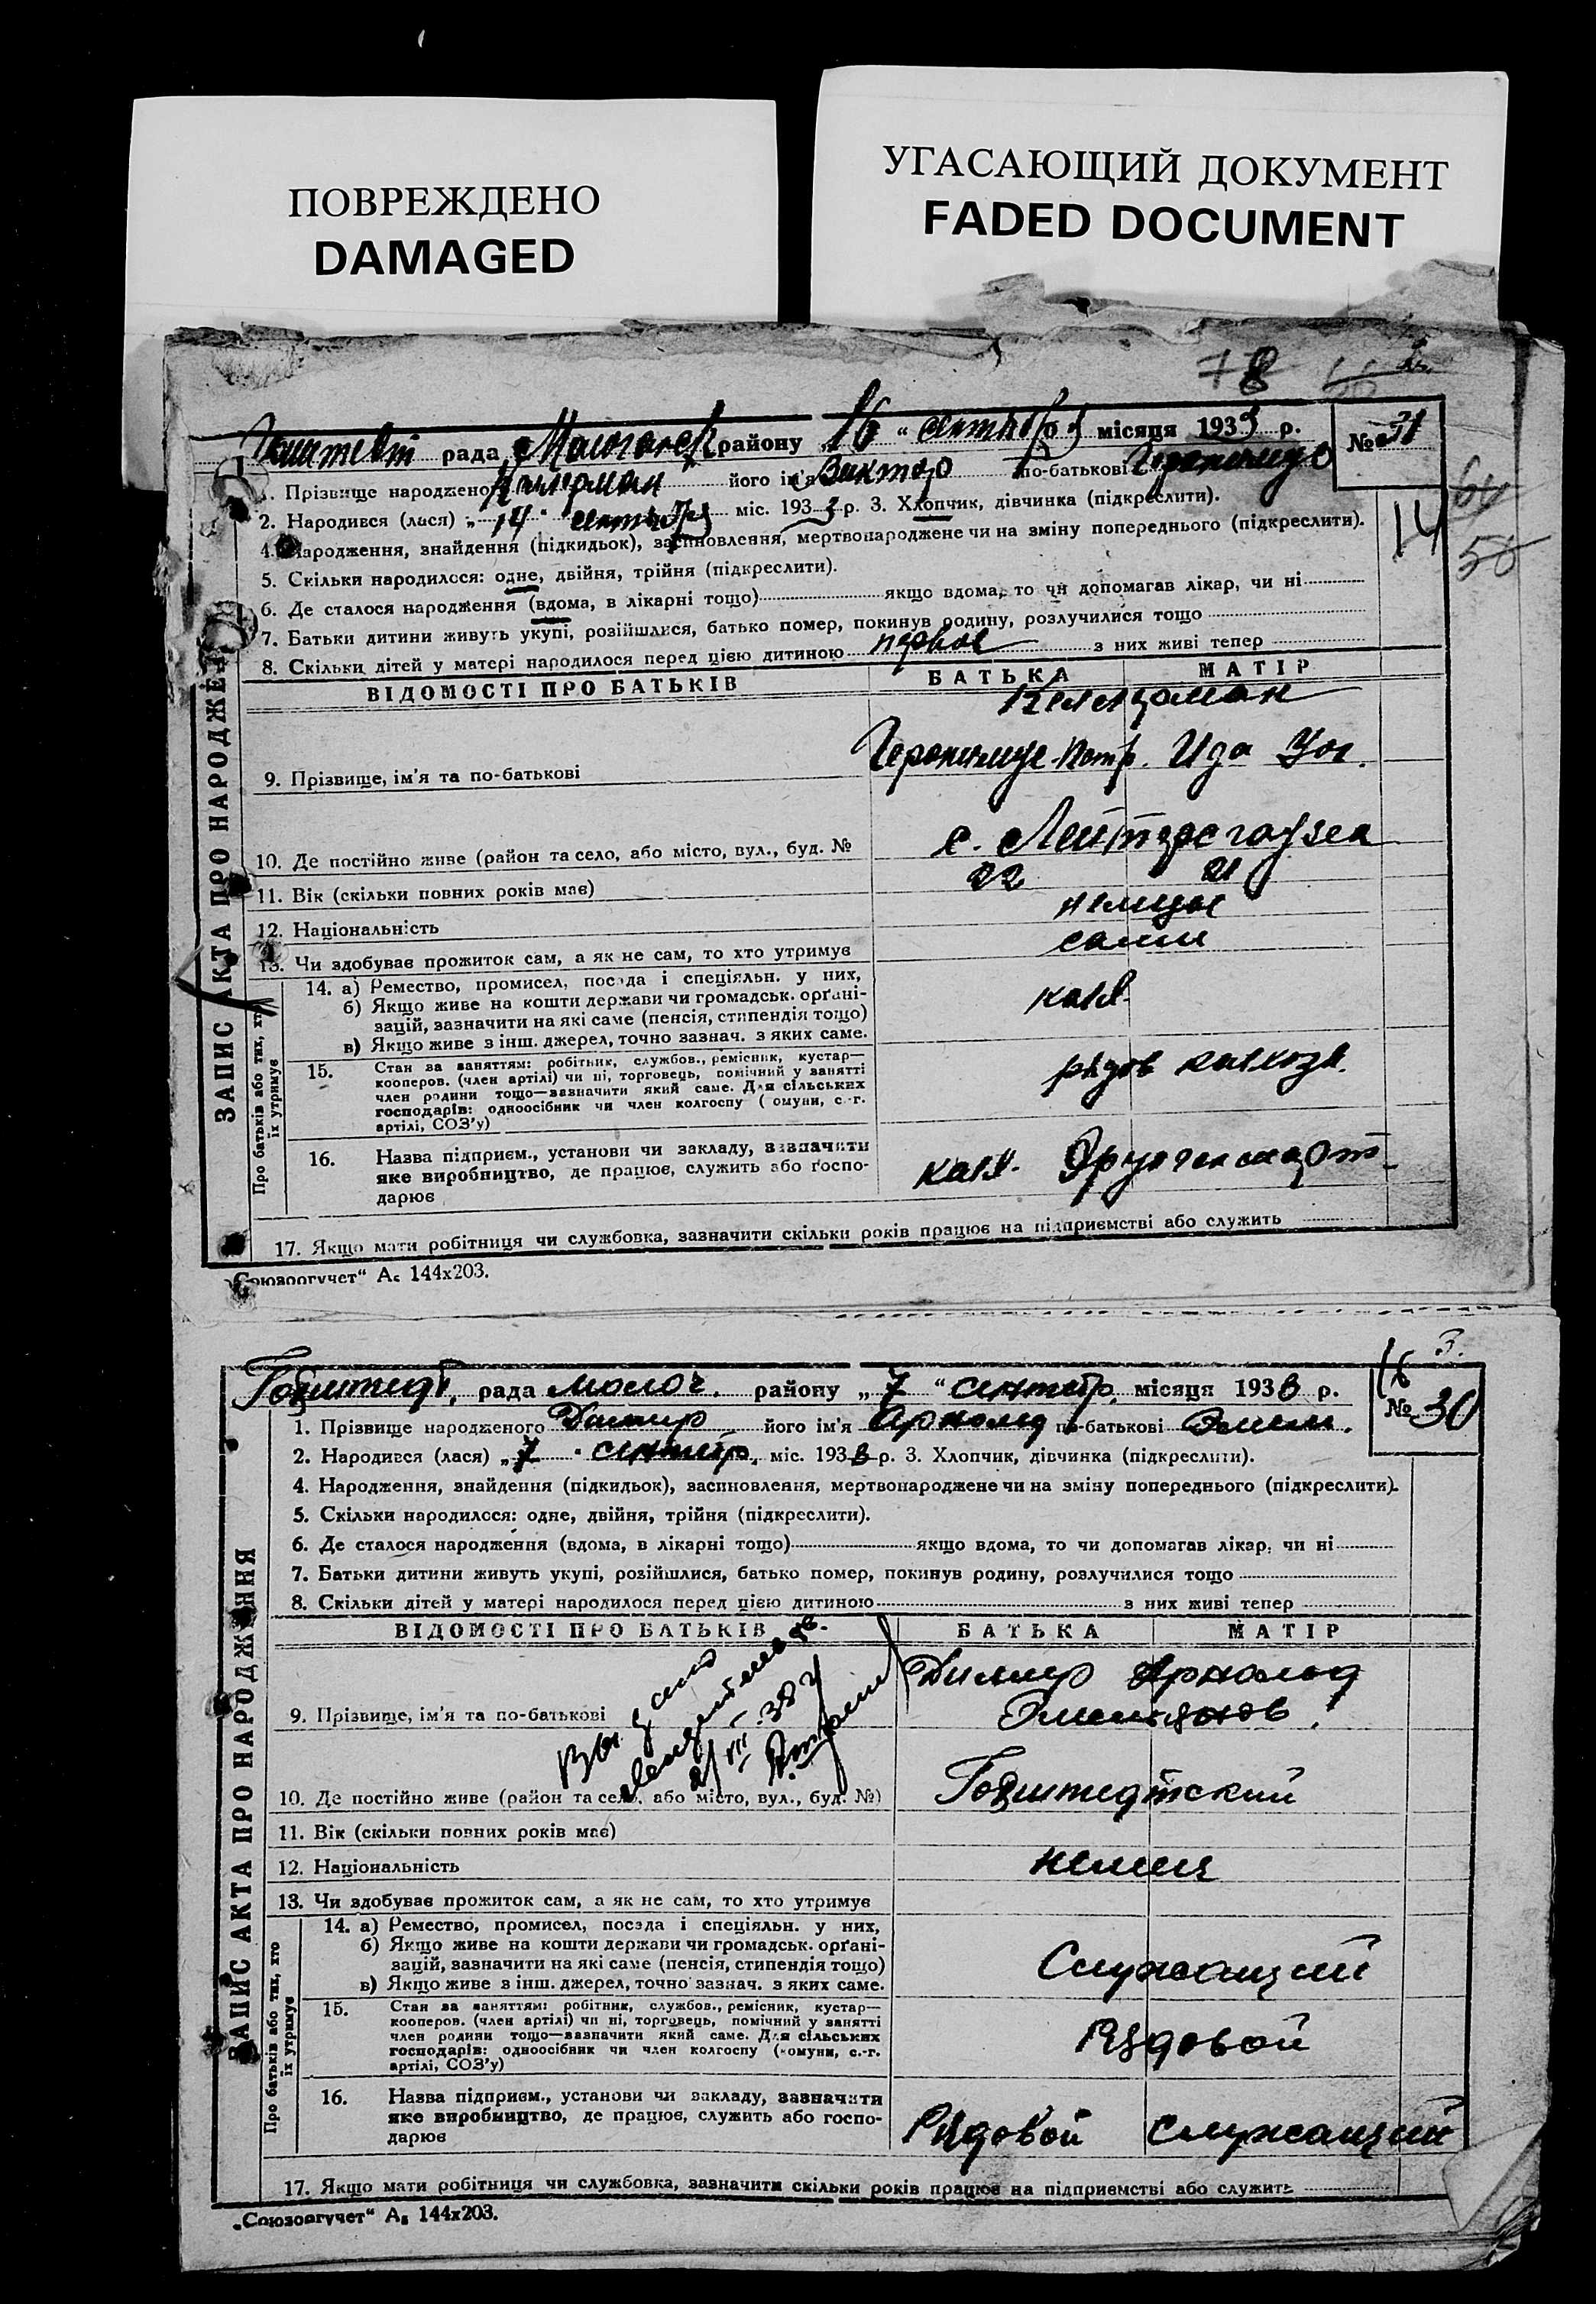 ПОВРЕЖДЕНО
DAMAGED
УГАСАЮЩИЙ ДОКУМЕНТ
FADED DOCUMENT
78
рада району „16 “ сентября місяця 1933 р.
№ 31
1. Прізвище народженого Келлерман його ім'я Виктор по-батькові
2. Народився (лася) „ 14 “ сентября міс. 1933 р. 3. Хлопчик, дівчинка (підкреслити).
14
4. Народження, знайдення (підкидьок), засиновлення, мертвонароджене чи на зміну попереднього (підкреслити).
5. Скільки народилося: одне, двійня, трійня (підкреслити).
6. Де сталося народження (вдома, в лікарні тощо) якщо вдома, то чи допомагав лікар, чи ні
7. Батьки дитини живуть укупі, розійшлися, батько помер, покинув родину, розлучилися тощо
8. Скільки дітей у матері народилося перед цією дитиною первое з них живі тепер
ВІДОМОСТІ ПРО БАТЬКІВ БАТЬКА МАТІР
Келлерман
9. Прізвище, ім'я та по-батькові Петр. Ида
10. Де постійно живе (район та село, або місто, вул., буд. № с. Лейтерсгаузен
11. Вік (скільки повних років має) 22 21
12. Національність немцы
13. Чи здобуває прожиток сам, а як не сам, то хто утримує сами
14. а) Ремество, промисел, посада і спеціяльн. у них,
б) Якщо живе на кошти держави чи громадськ. орґані-
зацій, зазначити на які саме (пенсія, стипендія тощо)
в) Якщо живе з інш. джерел, точно зазнач. з яких саме.
колх.
15. Стан за заняттям: робітник, службов., ремісник, кустар—
кооперов. (член артілі) чи ні, торговець, помічний у занятті
член родини тощо—зазначити який саме. Для сільських
господарів: одноосібник чи член колгоспу (комуни, с.-г.
артілі, СОЗ'у)
рядов. колхозн.
16. Назва підприєм., установи чи закладу, зазначити
яке виробництво, де працює, служить або ґоспо-
дарює
колх.
17. Якщо мати робітниця чи службовка, зазначити скільки років працює на підприємстві або служить
ЗАПИС АКТА ПРО НАРОДЖЕННЯ
Про батьків або тих, хто
їх утримує
„Союзоргучет“ А₆ 144х203.
16
Гохштедт. рада Молоч. району „ 7 “ сентябр. місяця 1933 р.
№ 30
1. Прізвище народженого його ім'я Арнольд по-батькові
2. Народився (лася) „ 7 “ сентябр. міс. 1933 р. 3. Хлопчик, дівчинка (підкреслити).
4. Народження, знайдення (підкидьок), засиновлення, мертвонароджене чи на зміну попереднього (підкреслити).
5. Скільки народилося: одне, двійня, трійня (підкреслити).
6. Де сталося народження (вдома, в лікарні тощо) якщо вдома, то чи допомагав лікар, чи ні
7. Батьки дитини живуть укупі, розійшлися, батько помер, покинув родину, розлучилися тощо
8. Скільки дітей у матері народилося перед цією дитиною з них живі тепер
ВІДОМОСТІ ПРО БАТЬКІВ БАТЬКА МАТІР
Выдано
9. Прізвище, ім'я та по-батькові Арнольд
10. Де постійно живе (район та село, або місто, вул., буд. №) Гохштедтский
11. Вік (скільки повних років має)
12. Національність немец
13. Чи здобуває прожиток сам, а як не сам, то хто утримує
14. а) Ремество, промисел, посада і спеціяльн. у них,
б) Якщо живе на кошти держави чи громадськ. орґані-
зацій, зазначити на які саме (пенсія, стипендія тощо)
в) Якщо живе з інш. джерел, точно зазнач. з яких саме.
Служащий
15. Стан за заняттям: робітник, службов., ремісник, кустар—
кооперов. (член артілі) чи ні, торговець, помічний у занятті
член родини тощо—зазначити який саме. Для сільських
господарів: одноосібник чи член колгоспу (комуни, с.-г.
артілі, СОЗ'у)
Рядовой
16. Назва підприєм., установи чи закладу, зазначити
яке виробництво, де працює, служить або госпо-
дарює
Рядовой Служащий
17. Якщо мати робітниця чи службовка, зазначити скільки років працює на підприємстві або служить
ЗАПИС АКТА ПРО НАРОДЖЕННЯ
Про батьків або тих, хто
їх утримує
„Союзоргучет“ А₆ 144х203.